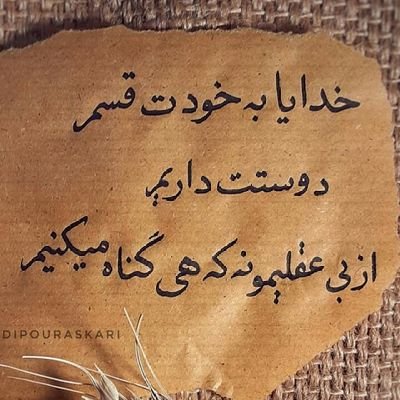 خدایا به خودت قسم
دوستت داریم
از بی عقلیمونه که هی گناه میکنیم
DIPOURASKARI